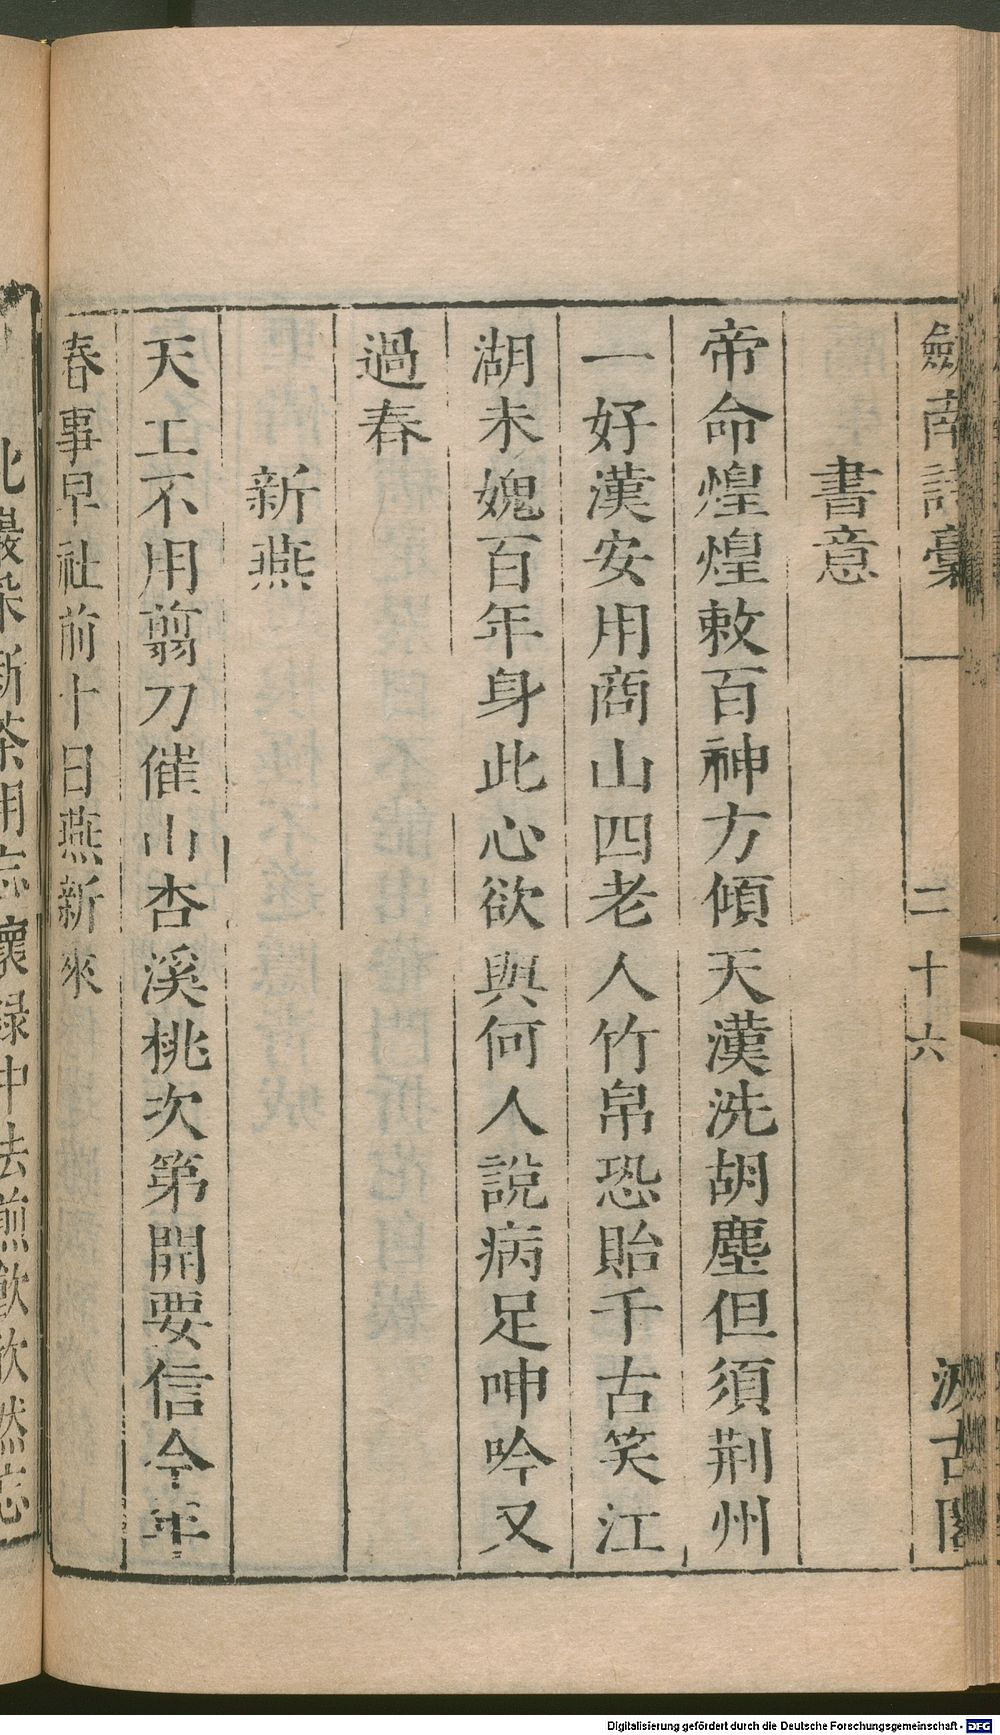 劍南詩稾 二十六 汲古閣
書意
帝命煌煌敕百神方傾天漢洗胡塵但須荆州
一好漢安用商山四老人竹帛恐貽千古笑江
湖未媿百年身此心欲與何人說病足呻吟又
過春
新燕
天工不用剪刀催山杏溪桃次第開要信今年
春事早社前十日燕新來
北巖采新茶用忘懷録中法煎飲欣然忘
Digitalisierung gefördert durch die Deutsche Forschungsgemeinschaft - DFG